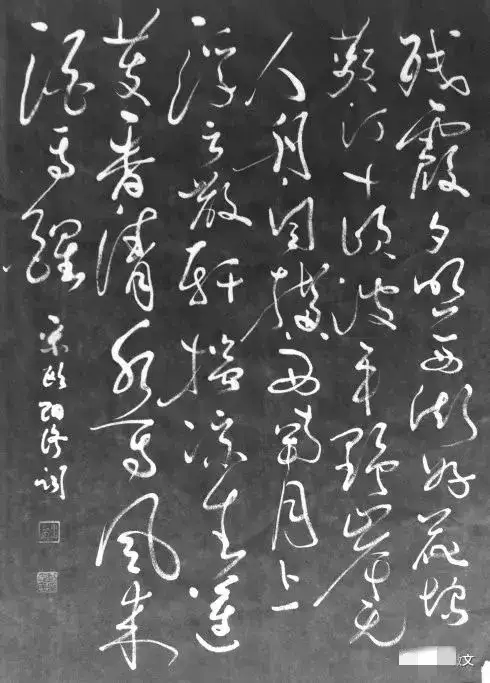 残霞夕照西湖好花坞
蘋汀十顷波平野岸无
人舟自横西南月上
浮云散轩槛凉生莲
芰香清水面风来
酒面醒
宋欧阳修词
文